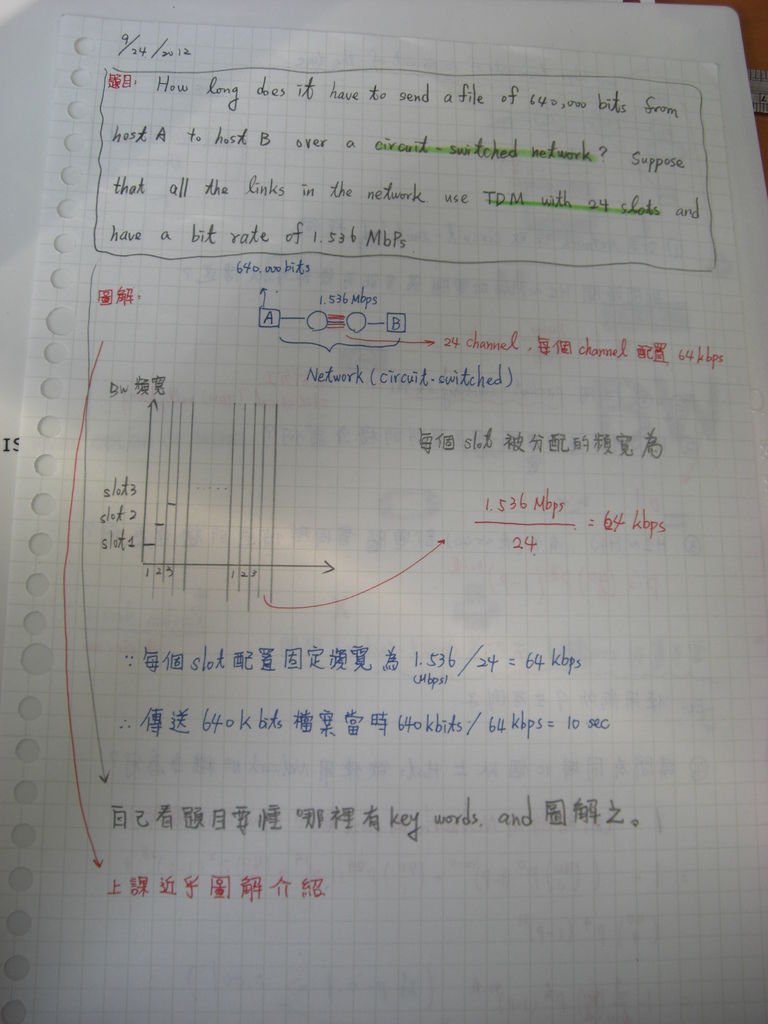 9/24/2012
題目: How long does it have to send a file of 640,000 bits from
host A to host B over a circuit-switched network? Suppose
that all the links in the network use TDM with 24 slots and
have a bit rate of 1.536 MbPs.
640,000bits
圖解:
1.536 Mbps
A
B
24 channel, 每個 channel 配置 64kbps
Network (circuit-switched)
BW 頻寬
每個 slot 被分配的頻寬為
slot3
slot 2
slot1
.....
1 2 3
1 2 3
1.536 Mbps
24
= 64 kbps
∵ 每個 slot 配置固定頻寬為 1.536 / 24 = 64 kbps
(Mbps)
∴ 傳送 640k bits 檔案當時 640kbits / 64 kbps = 10 sec
自己看題目要懂 哪裡有 key words, and 圖解之。
上課近乎圖解介紹
IS